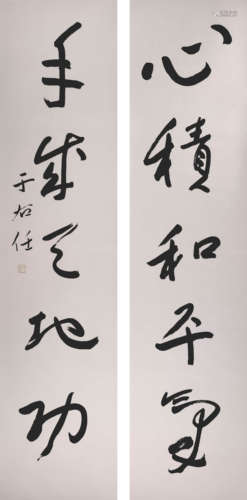 心積和平氣
手成天地功
于右任